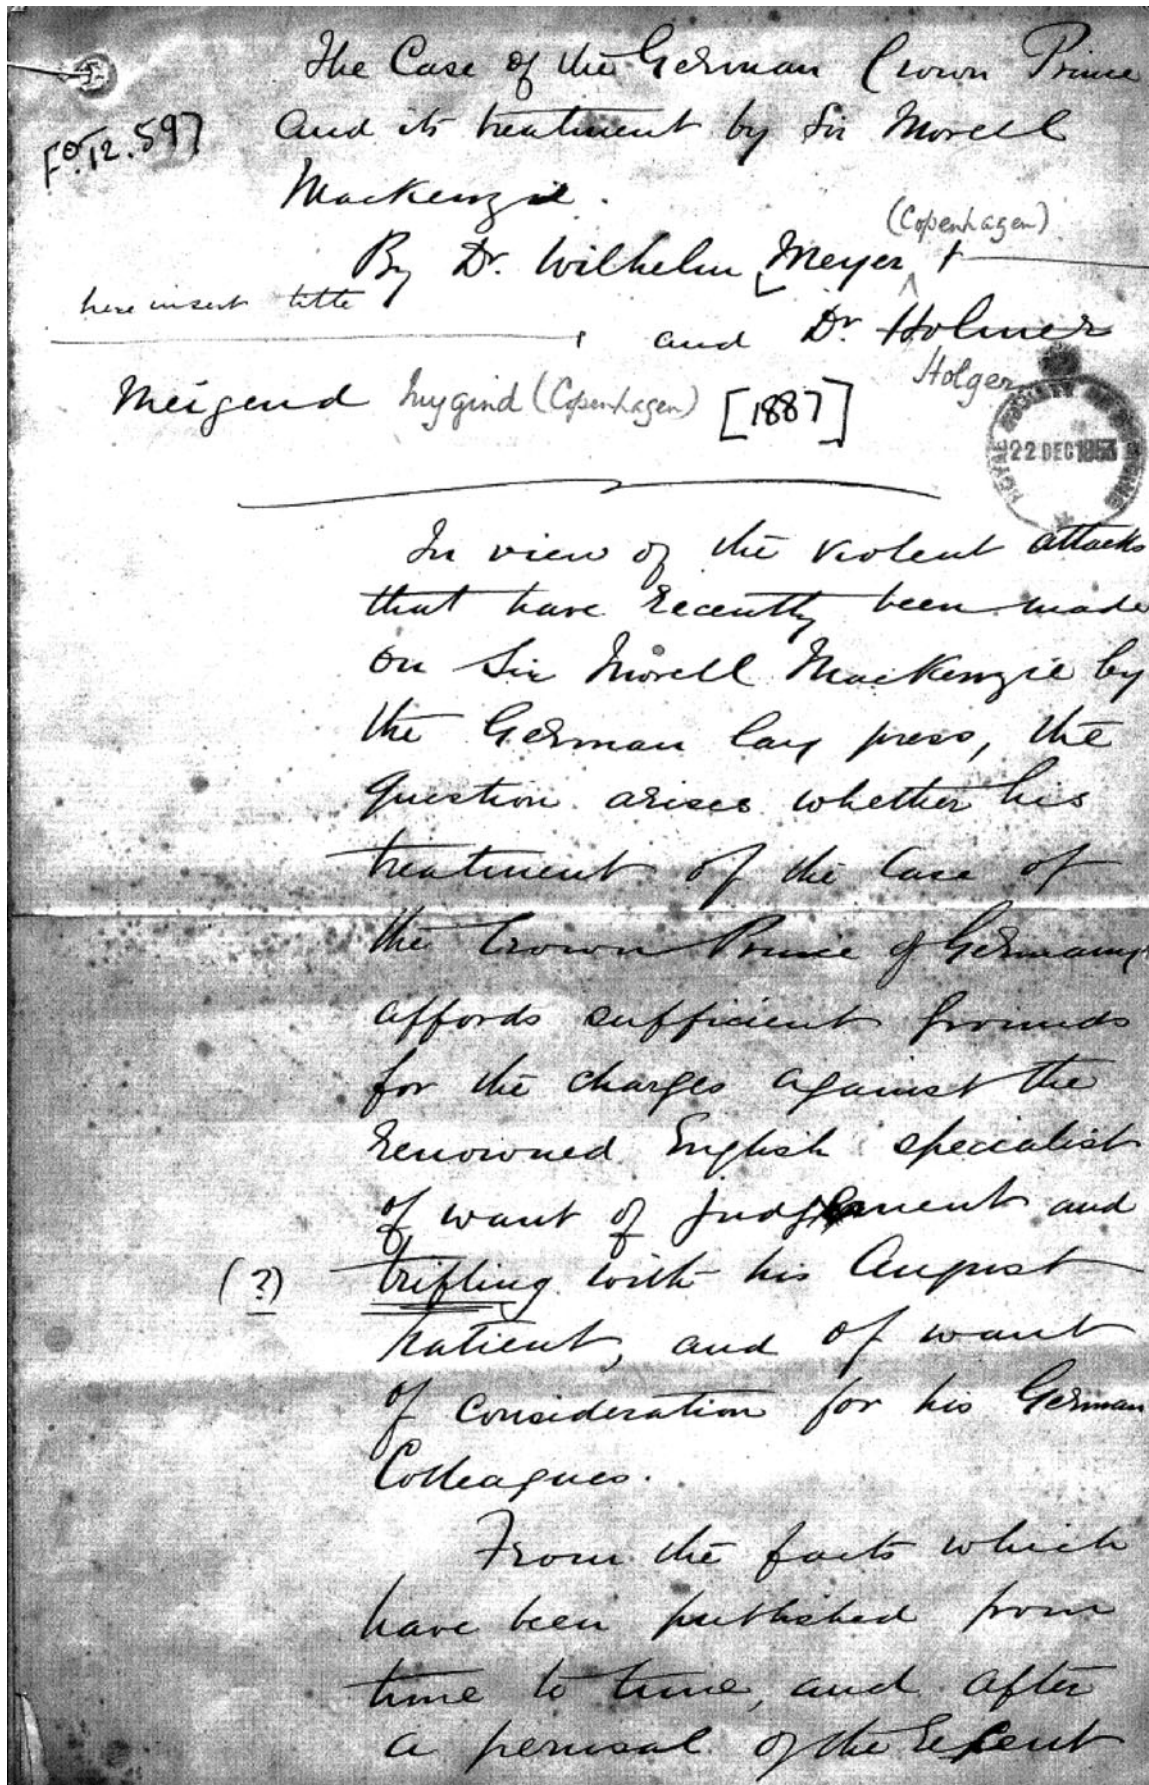 The Case of the German Crown Prince
and its treatment by Sir Morell
Mackenzie.
(Copenhagen)
Fo. 12. 597
By Dr. Wilhelm Meyer +
here insert title
and Dr. Holmer
Holger
Meigend Mygind (Copenhagen) [1887]
22 DEC 1953
In view of the violent attacks
that have recently been made
on Sir Morell MacKenzie by
the German lay press, the
question arises whether his
treatment of the Case of
the Crown Prince of Germany
affords sufficient grounds
for the charges against the
renowned English specialist
of want of judgment and
(?) trifling with his August
patient, and of want
of consideration for his German
Colleagues.
From the facts which
have been published from
time to time, and after
a perusal of the recent